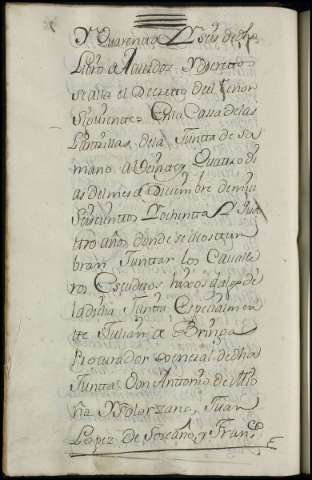 Y Quarenta Y Seis de dho
Libro de Acuerdos Y Decretos
se alla el Decretto del thenor
Siguiente = En la Cassa de las
de la Juntta de So
mano a Veinte y Quattro di
as del mes de Diciembre de mill
Seiscientos Y Ochentta Y Qua
ttro años donde se acostum
bran Junttar los Cavalle
ros Escuderos hixos dalgo de
la dicha Juntta Especialmen
te Julian de
Procurador General de dha
Juntta Don Anttonio de
Y Solorzano, Juan
Lopez de y Franco